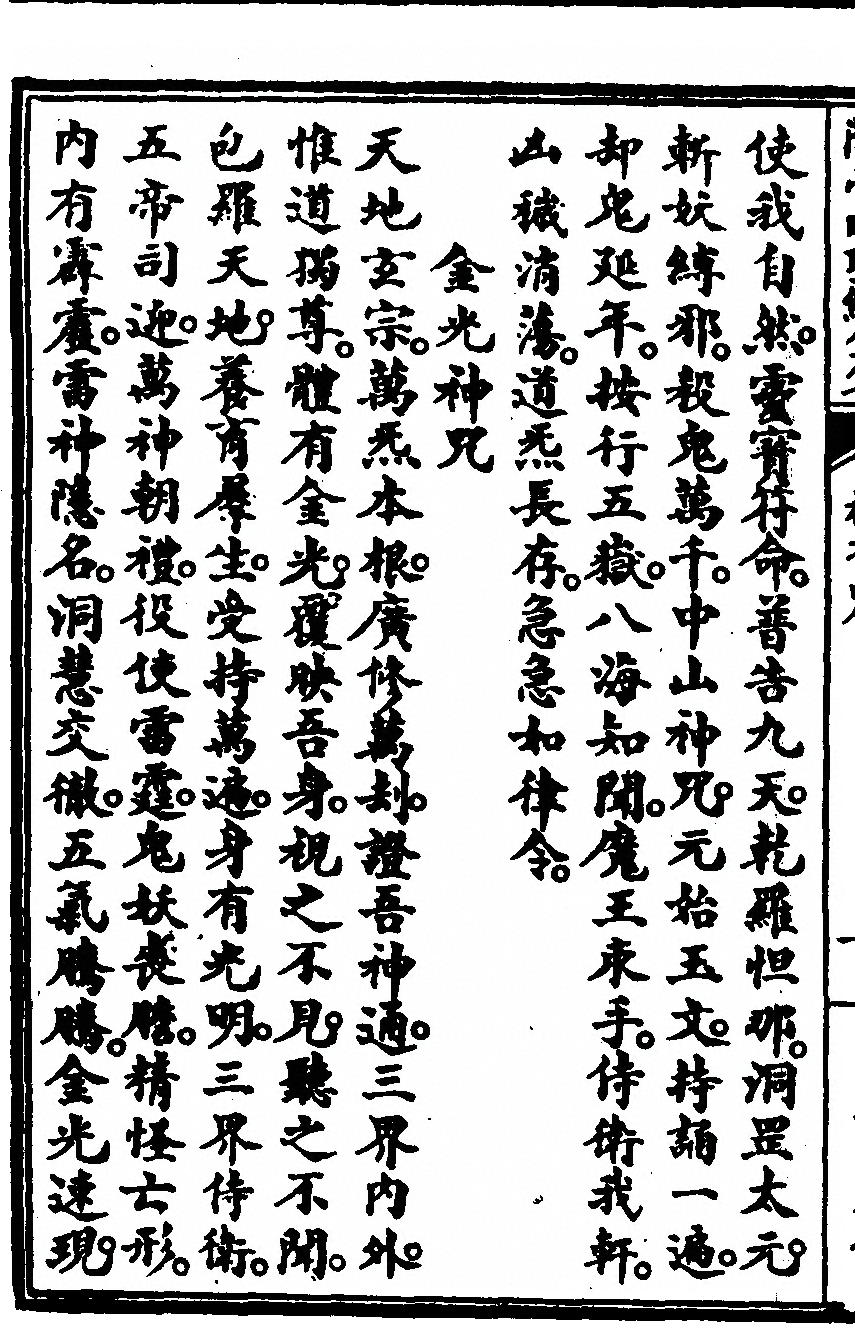 使我自然。靈寶符命。普告九天。乾羅怛那。洞罡太元。
斬妖縛邪。殺鬼萬千。中山神咒。元始玉文。持誦一遍。
却鬼延年。按行五嶽。八海知聞。魔王束手。侍衛我軒。
凶穢消蕩。道炁長存。急急如律令。
金光神咒
天地玄宗。萬炁本根。廣修萬刦。證吾神通。三界內外。
惟道獨尊。體有金光。覆映吾身。視之不見。聽之不聞。
包羅天地。養育羣生。受持萬遍。身有光明。三界侍衛。
五帝司迎。萬神朝禮。役使雷霆。鬼妖喪膽。精怪亡形。
內有霹靂。雷神隱名。洞慧交徹。五氣騰騰。金光速現。